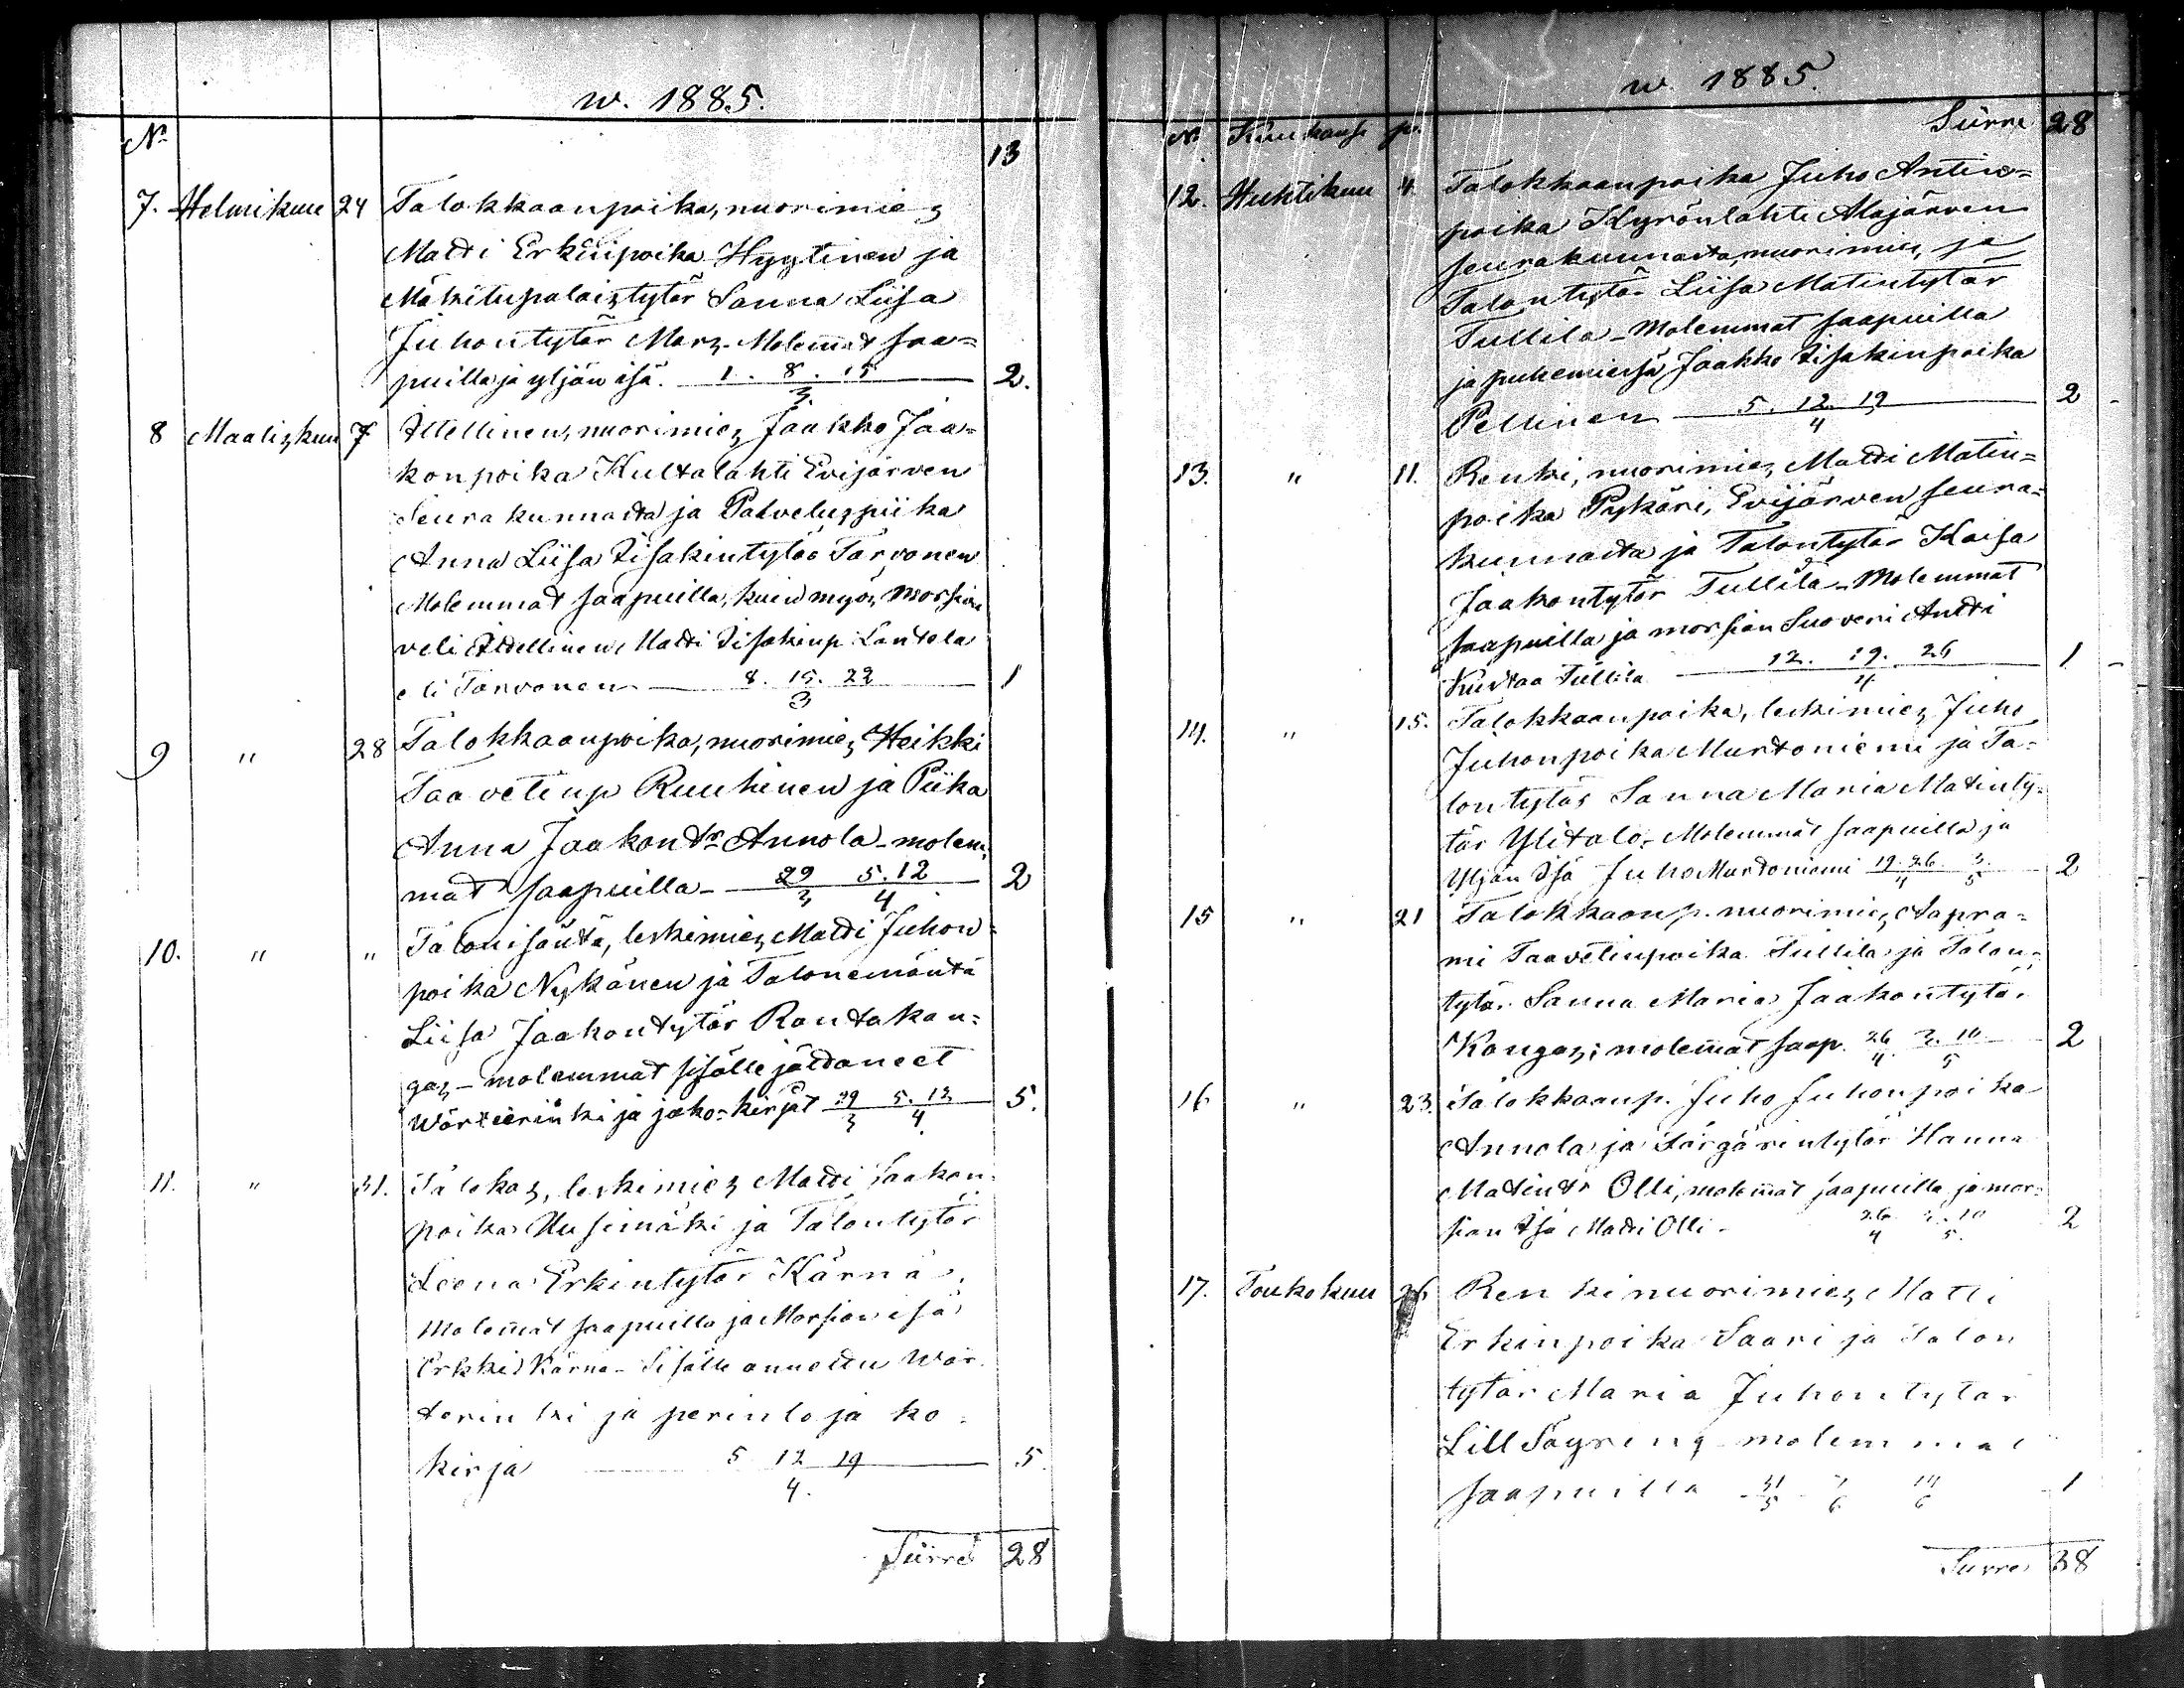 w. 1885.
No
13
7. Helmikuu 24 Talokkaanpoika, nuorimies
Matti Erkinpoika Hyytinen ja
Mäkitupalaistytär Sanna Liisa
Juhontytär Mars. Molemmat saa=
puilla ja yljän isä. 1. 8. 15 2.
3
8 Maaliskuu 7 Itellinen, nuorimies Jaakko Jaa=
konpoika Kultalahti Evijärven
Seurakunnasta ja Palveluspiika
Anna Liisa Iisakintytär Tarvonen
Molemmat saapuilla, kuin myös morsian
veli Itellinen Matti Iisakinp. Lantola
Tarvonen 8. 15. 22 1
3
9 " 28 Talokkaanpoika, nuorimies Heikki
Taavetinp Ruuhinen ja Piika
Anna Jaakontr Annola - molem
mat saapuilla - 29 5. 12 2
3 4
10. " " Talonisäntä, leskimies Matti Juhon=
poika Nykänen ja Talonemäntä
Liisa Jaakontytär Rantakan=
gas - molemmat sisälle jättäneet
Wärteerinki ja jako=kirjat 29 5. 12 5.
3 4
11. " 31. Talokas, leskimies Matti Jaakon
poika Uusimäki ja Talontytär
Leena Erkintytär Kärnä.
Molemmat saapuilla ja Morsian isä
Erkki Kärnä - Sisälle annettu Wär
terinki ja perinto ja ko=
kirja 5 12 19 5.
4.
Siirre 28
w. 1885.
No Kuukausi p. Siirre 28
12. Huhtikuu 4. Talokkaanpoika Juho Antin=
poika Kyrönlahti Alajärven
seurakunnasta, nuorimies, ja
Talontytär Liisa Matintytär
Tullila - Molemmat saapuilla
ja puhemiessä Jaakko Iisakinpoika
Pellinen 5. 12. 19 2
4
13. " 11. Renki, nuorimies Matti Matin=
poika Pyskäri, Evijärven seura=
kunnasta ja Talontytär Kaisa
Jaakontytär Tullila - Molemmat
saapuilla ja morsian Antti
Kustaa Tullila 12. 19. 26 1
4
14. " 15. Talokkaanpoika, leskimies Juho
Juhonpoika Murtoniemi ja Ta=
lontytär Sanna Maria Matinty=
tär Ylitalo - Molemmat saapuilla ja
Yljän Isä Juho Murtoniemi 19. 26. 3. 2
4 5
15 " 21 Talokkaanp. nuorimies Aapra=
mi Taavetinpoika Tullila ja Talon=
tytär Sanna Maria Jaakontytär
Kangas; molemmat saap. 26 3. 10 2
4. 5
16 " 23. Talokkaanp. Juho Juhonpoika
Annola ja Färgärintytär Hanna
Matintr Olli, molemmat saapuilla ja mor=
sian Isä Matti Olli - 26 3. 10 2
4 5.
17. Toukokuu 26 Renki nuorimies Matti
Erkinpoika Saari ja Talon
tytär Maria Juhontytär
Lill molemmat
saapuilla 31 7 14 1
5 6 6
Siirre 38